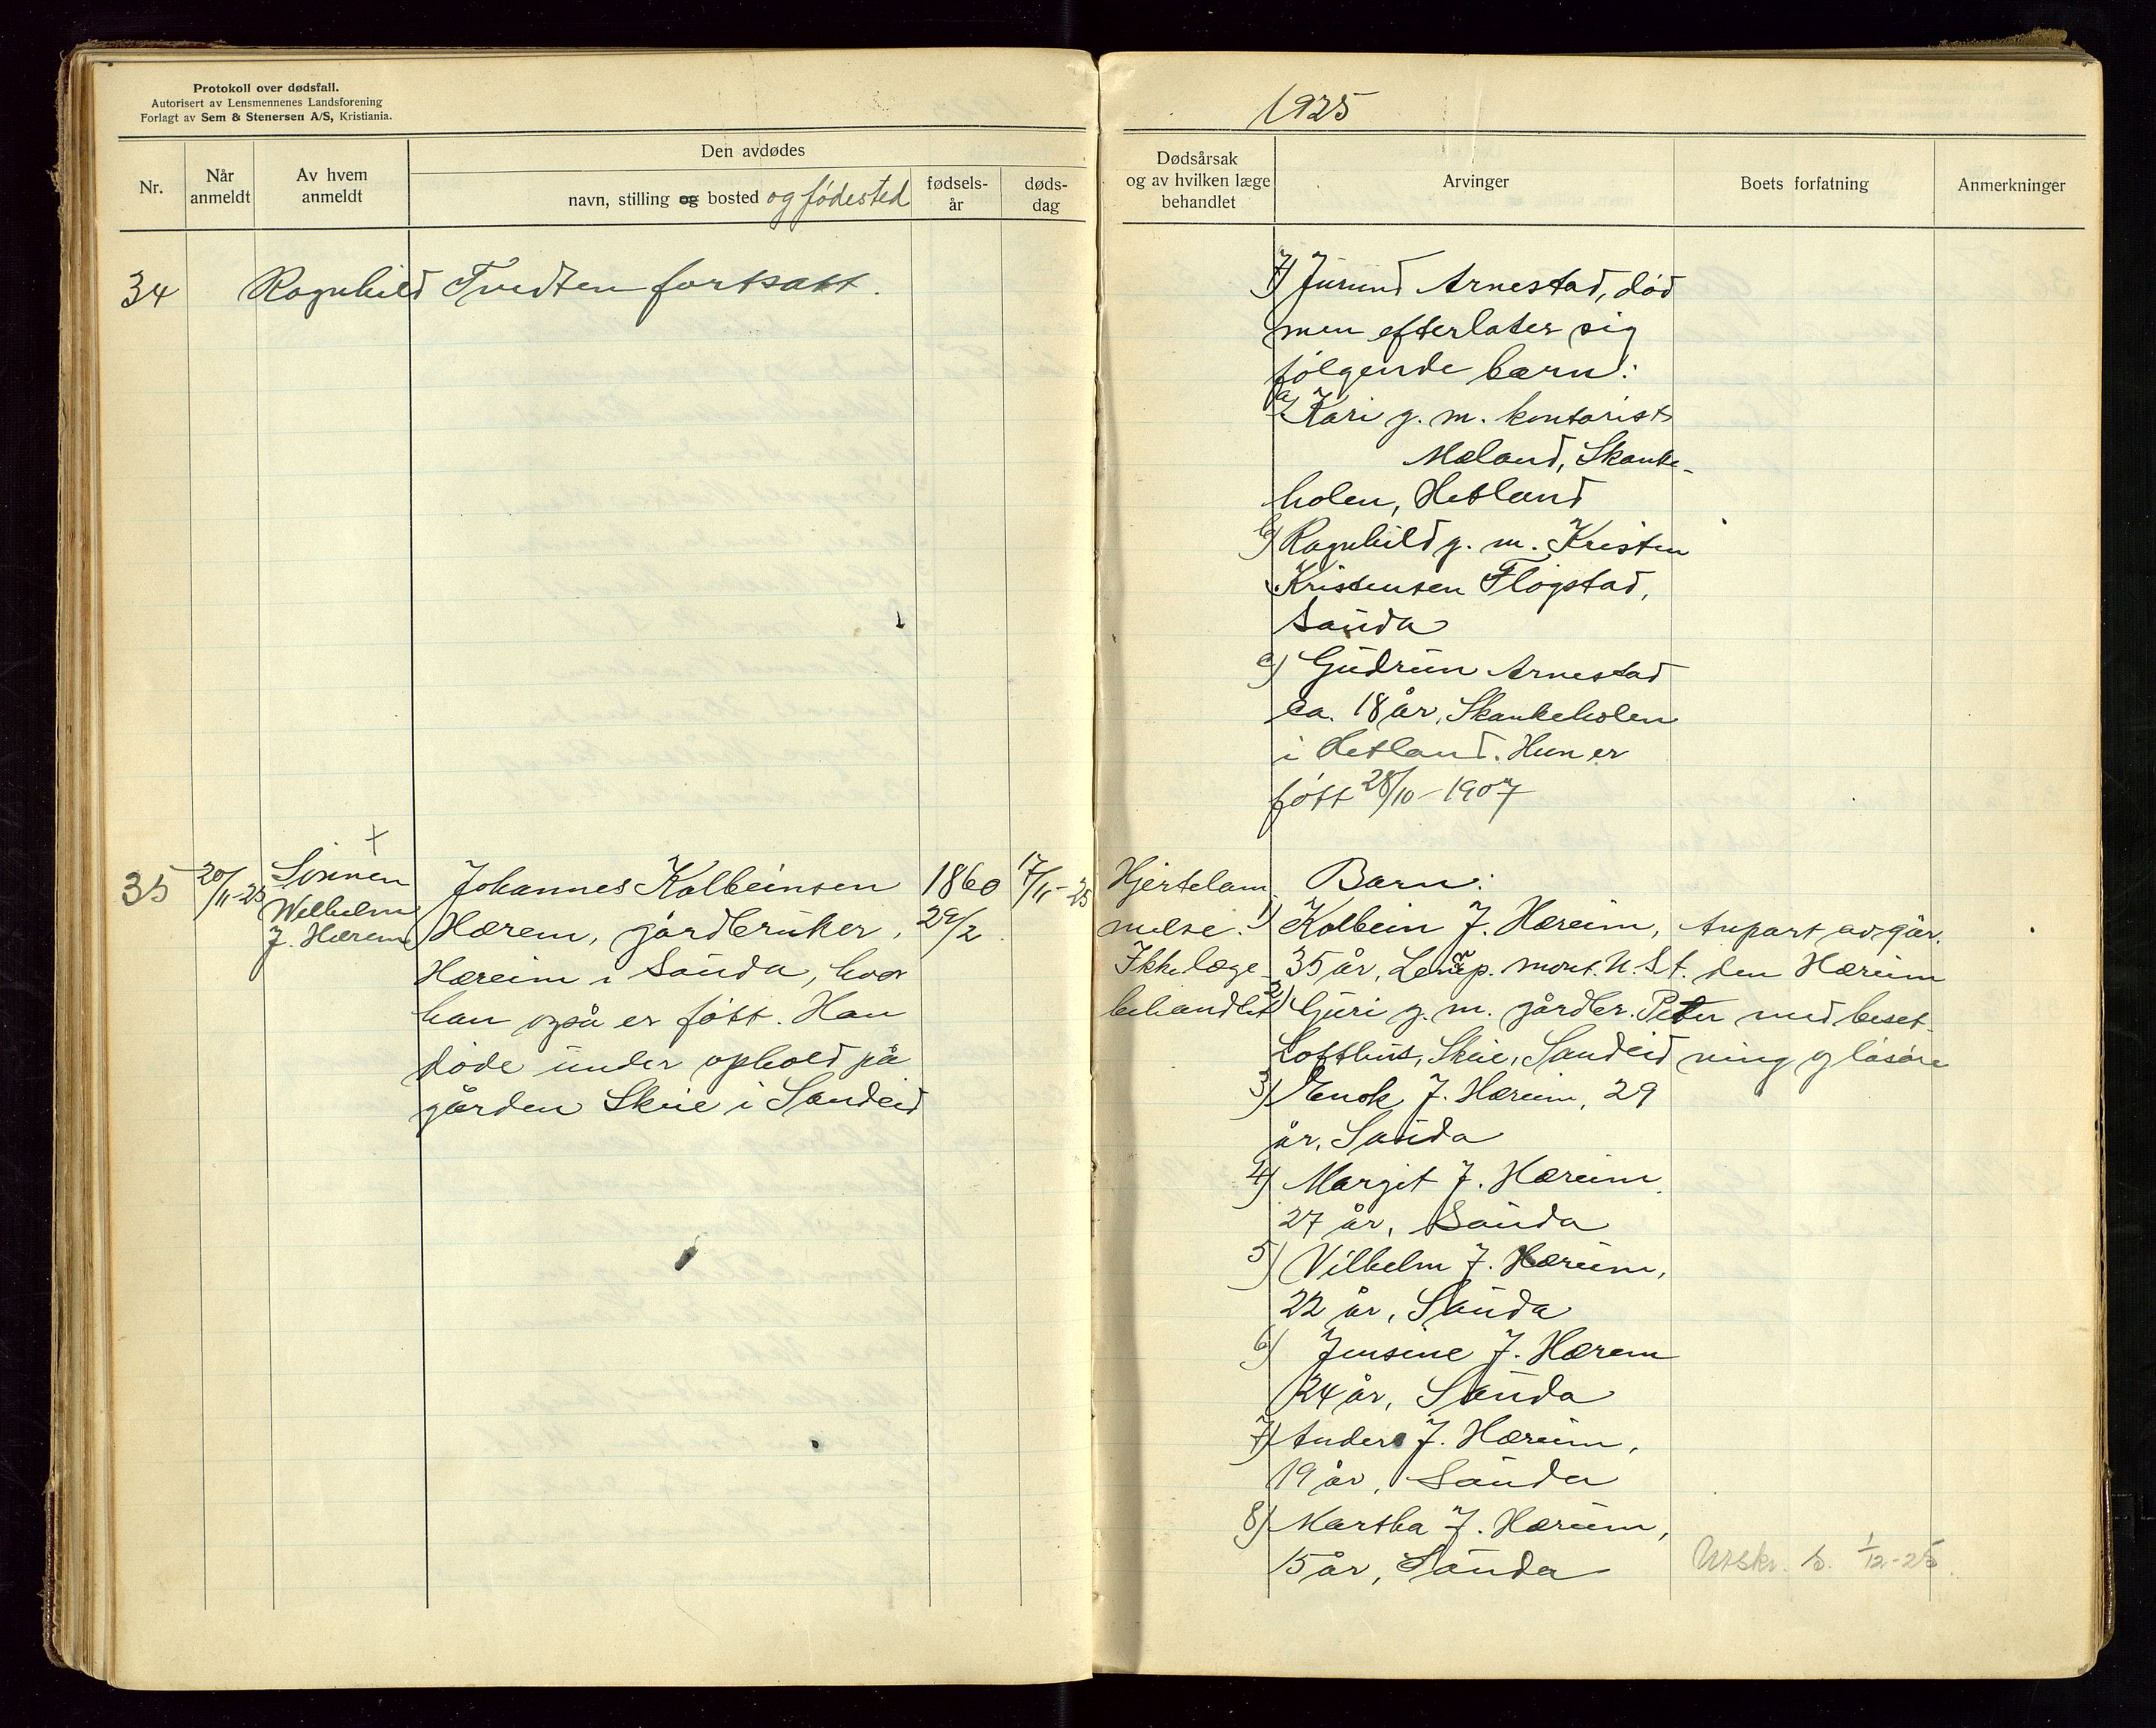 Protokoll over dødsfall.
Autorisert av Lensmennenes Landsforening
Forlagt av Sem & Stenersen A/S, Kristiania.
Nr.
Når
anmeldt
Av hvem
anmeldt
Den avdødes
navn, stilling og bosted og fødested
fødsels-
år
døds-
dag
34
Ragnhild Tvedten fortsatt.
35
20/11-25
Sönnen
Wilhelm
J. Hæreim
Johannes Kolbeinsen
Hæreim, gårdbruker,
Hæreim i Sauda, hvor
han også er fött. Han
døde under ophold på
gården Skeie i Sandeid
1860
29/2
17/11-25
1925
Dødsårsak
og av hvilken læge
behandlet
Arvinger
Boets forfatning
Anmerkninger
7) Jurund Arnestad, död
men efterlater sig
følgende barn:
a) Kari g. m. kontorist
Mæland, Skanke-
holen, Hetland
b) Ragnhild g. m. Kristen
Kristensen Flogstad,
Sauda
c) Gudrun Arnestad
ca. 18 år, Skankeholen
i Hetland. Hun er
fött 28/10-1907
Hjertelam-
melse.
Ikke læge-
behandlet
Barn:
1) Kolbein J. Hæreim,
35 år, mont. U. St.
2) Guri g. m. gårdbr. Peter
Lofthus, Skeie, Sandeid
3) Enok J. Hæreim, 29
år, Sauda
4) Margit J. Hæreim,
27 år, Sauda
5) Vilhelm J. Hæreim,
22 år, Sauda
6) Jensine J. Hæreim
24 år, Sauda
7) Anders J. Hæreim,
19 år, Sauda
8) Martha J. Hæreim,
15 år, Sauda
Anpart av går-
den Hæreim
med beset-
ning og løsøre
Utskr. s. 1/12-25.